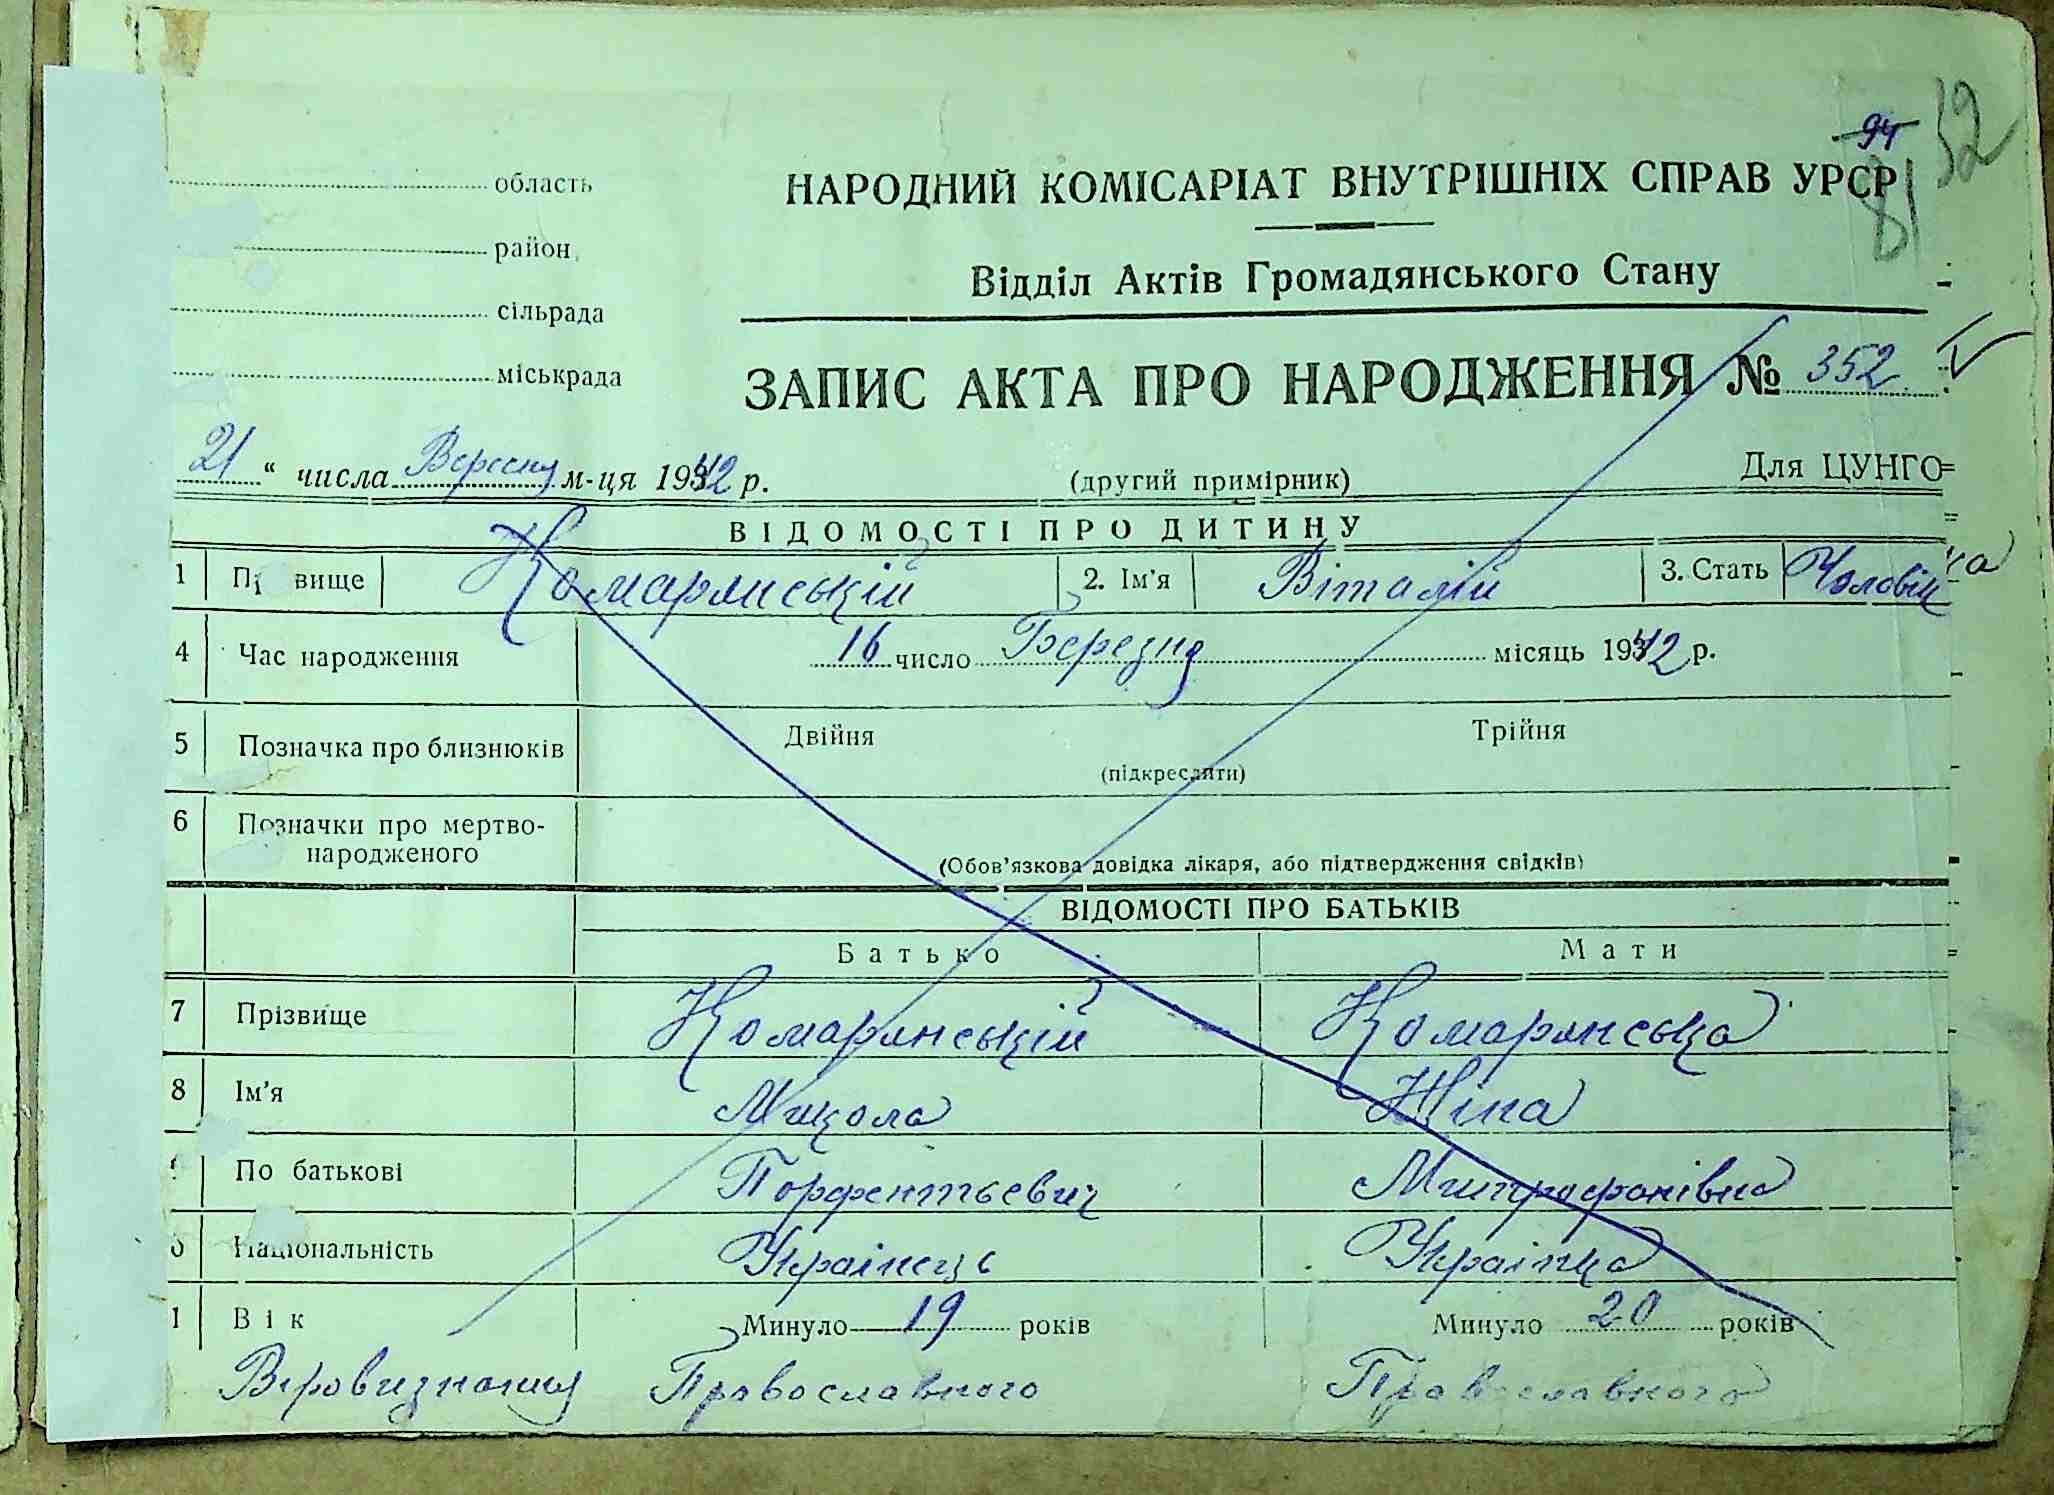 94
32
81
область
НАРОДНИЙ КОМІСАРІАТ ВНУТРІШНІХ СПРАВ УРСР
район
Відділ Актів Громадянського Стану
сільрада
міськрада
ЗАПИС АКТА ПРО НАРОДЖЕННЯ № 352
21 " числа Вересня м-ця 1942 р.
(другий примірник)
Для ЦУНГО
ВІДОМОСТІ ПРО ДИТИНУ
1 Пі вище Комарянський 2. Ім'я Віталій 3. Стать Чоловіча
4 Час народження 16 число Березня місяць 1942 р.
5 Позначка про близнюків Двійня Трійня
(підкреслити)
6 Позначки про мертво-
народженого
(Обов'язкова довідка лікаря, або підтвердження свідків)
ВІДОМОСТІ ПРО БАТЬКІВ
Батько Мати
7 Прізвище Комарянський Комарянська
8 Ім'я Микола Ніна
По батькові Порфентьевич Митрофанівна
Національність Українець Українка
1 Вік Минуло 19 років Минуло 20 років
Веровизнания Православного Православного